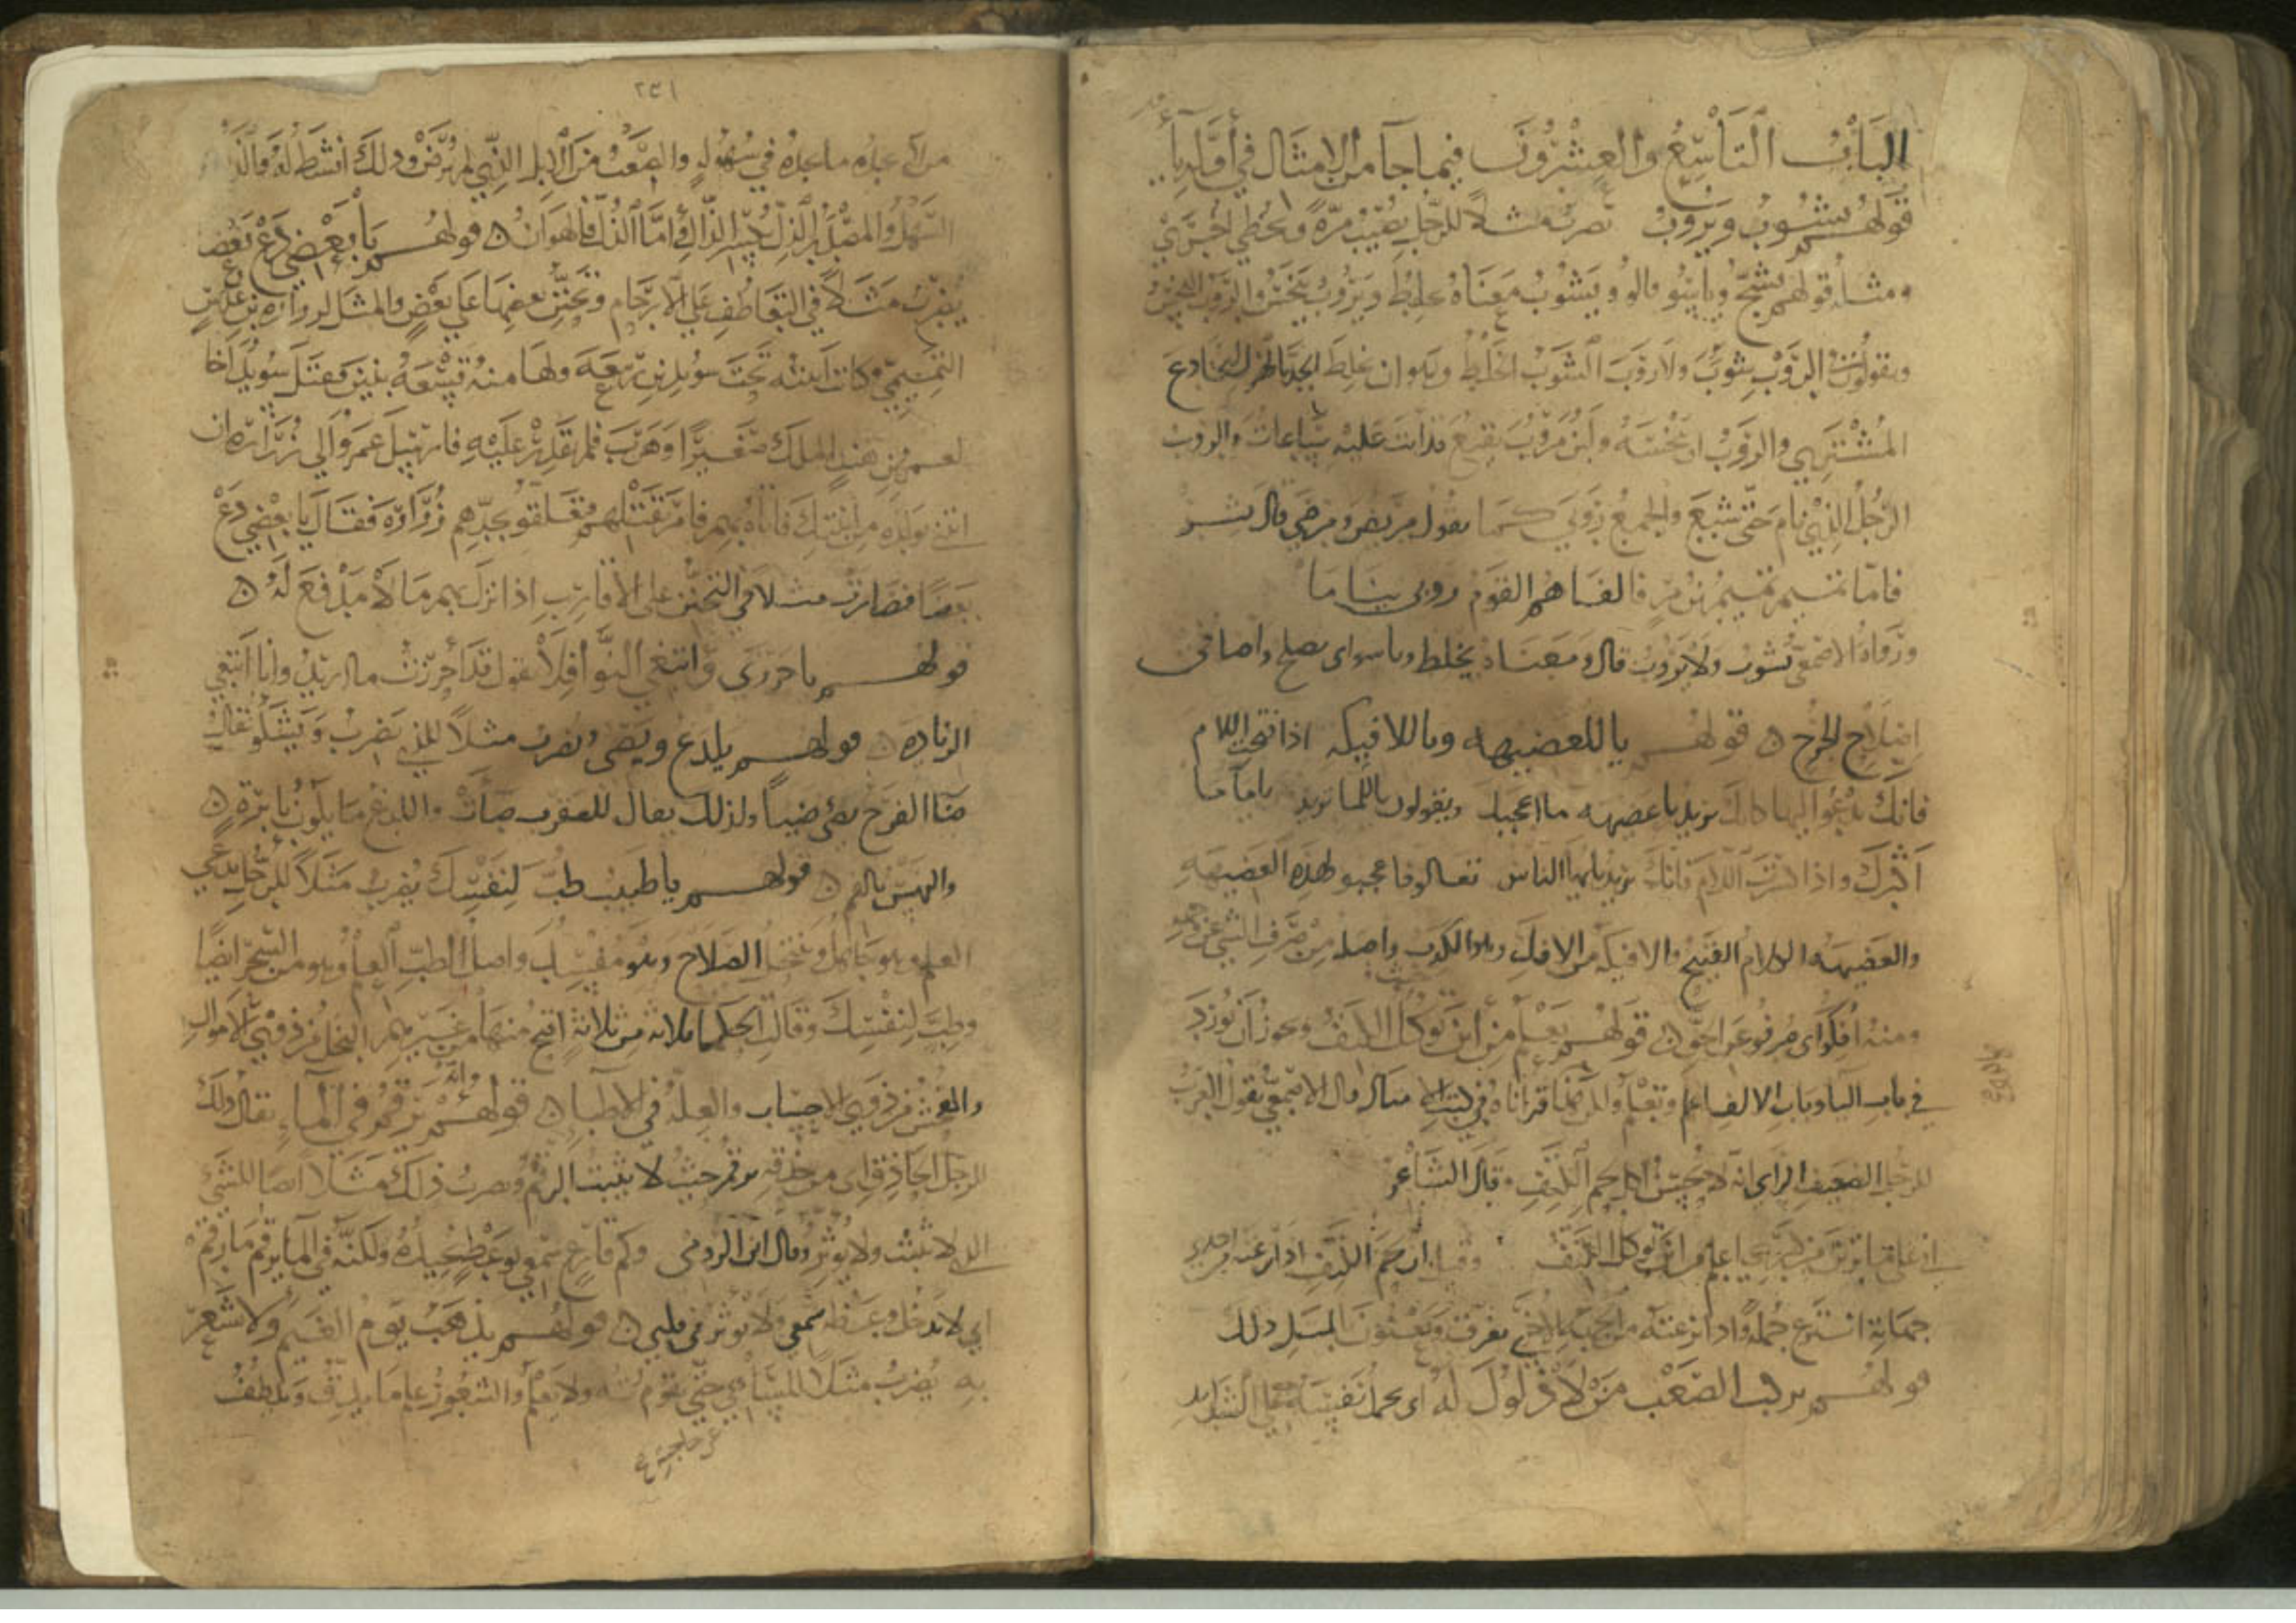 الباب التاسع والعشرون فيما جا من الامثال في أوله يآ
قولهم يشوب ويروب يضرب مثلا للرجل يصيب مرة ويخطي اخرى
ومثله قولهم يشج وياسو قالوا ويشوب معناه يخلط ويروب يخثر والروب التخثر
ويقولون الروب يشوب ولا روب الشوب الخلط وهو ان يخلط الجد بالهزل ليخادع
المشتري والروب ان يخثره ولبن مروب يقنع قد اتت عليه ساعات والروب
الرجل الذي نام حتى شبع والجمع روبي كما يقول مريض ومرضي قال بشر
فاما تميم تميم بن مر فالفاهم القوم روبي نياما
ورواه الاصمعي يشوب ولا يروب قال ومعناه يخلط وياسو اي يصلح واصله من
اصلاح الجرح ن قولهم يا للعضيهه ويا للافيكه اذا فتحت اللام
فانك تدعو اليها كانك تريد يا عضيهه ما اعجبك ويقولون يا للما تريد يا ما ما
اكثرك واذا كسرت اللام فانك تريد يا ايها الناس تعالوا فاعجبو لهذه العضيهه
والعضيهه الكلام القبيح والافيكه من الافك وهو الكذب واصله من صرف الشي عن جهته
ومنه أفكوا اي صرفو عن الحق ن قولهم يعلم من اين توكل الكتف ويجوز ان تورد
في باب اليا وباب الالف اعلم وتعلم والا انا قراناه في كتاب الامثال قال الاصمعي تقول العرب
للرجل الضعيف الراي انه لا يحسن اكل لحم الكتف وقال الشاعر
اني على ما ترين من كبري اعلم من اين توكل الكتف وقيل ان لحم الكتف اذا نزعته من احدي
جهاته انتزع جمله واذا نزعته من الجهة الاخري تفرق ويعنون بالمثل ذلك
قولهم يركب الصعب من لا ذلول له اي يحمل نفسه علي الشدايد
٢٣١
من لم يجد ما يجده في سهوله والصعب من الابل الذي لم يرض وذلك انشط له والذل
السهل والمصدر الذل بكسر الذال فأما الذل فالهوان ن قولهم يا بعضي دع بعضا
يضرب مثلا في التعاطف علي الارحام وتحنن بعضها علي بعض والمثل لزراره بن عدس
التميمي وكانت ابنته تحت سويد بن ربيعه ولها منه تسعة بنين فقتل سويد اخا
لعمرو بن هند الملك صغيرا وهرب فلم يقدر عليه فارسل عمرو الي زراره ان
ائتني بولده من ابنتك فاتاه بهم فامر بقتلهم فتعلقو بجدهم زراره فقال يا بعضي دع
بعضا فصارت مثلا في التحنن على الاقارب اذا نزل بهم ما لا مدفع له ن
قولهم يا حرزى وابتغي النوافلا يقول قد احرزت ما اريد وانا ابتغي
الزياده ن قولهم يلدغ ويصى يضرب مثلا للذي يضرب ويشكو يقال
صأا الفرخ يصى ضيا ولذلك يقال للعقرب صأت واللدغ ما يكون بابرة ن
والنهس بالفم ن قولهم يا طبيب طب لنفسك يضرب مثلا للرجل يدعي
العلم وهو جاهل وينتحل الصلاح وهو مفسد واصل الطب العلم وهو من السحر ايضا
وطب لنفسك وقالت الحكما ثلاثه من ثلاثة اقبح منها من غيرهم البخل من ذوي الاموال
والفحش من ذوي الاحساب والعلة في الاطبا ن قولهم يرقم في الماء يقال ذلك
للرجل الحاذق اي من حذقه يرقم حيث لا يثبت الرقم ويضرب ذلك مثلا ايضا للشئ
الذي لا يثبت ولا يوثر وقال ابن الرومي وكم قارع سمعي بوعظ يجيده ولكنه في الما يرقم ما رقم
اي لا يدخل وعظه سمعي ولا يوثر في قلبي ن قولهم يذهب يوم الغيم ولا شعر
به يضرب مثلا للساهي حتى تفوته ولا يعلم والشعور علم ما يدق ويلطف
عن حاجته